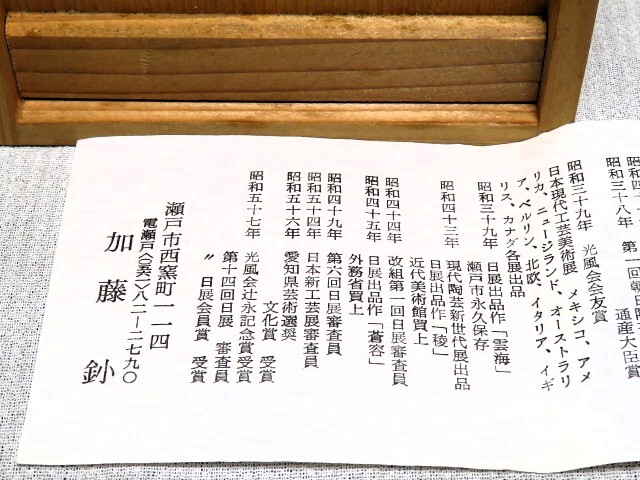 通産大臣賞
昭和三十九年 光風会会友賞
日本現代工芸美術展 メキシコ、アメ
リカ、ニュージランド、オーストラリ
ア、ベルリン、北欧、イタリア、イギ
リス、カナダ各展出品
昭和三十九年 日展出品作「雲海」
瀬戸市永久保存
昭和四十三年 現代陶芸新世代展出品
日展出品作「稜」
近代美術館買上
昭和四十四年 改組第一回日展審査員
昭和四十五年 日展出品作「蒼容」
外務省買上
昭和四十九年 第六回日展審査員
昭和五十四年 日本新工芸展審査員
昭和五十六年 愛知県芸術選奨
文化賞 受賞
昭和五十七年 光風会辻永記念賞受賞
第十四回日展 審査員
〃 日展会員賞 受賞
瀬戸市西窯町一一四
電瀬戸〈〇五六一〉八二―二七九〇
加藤 釥